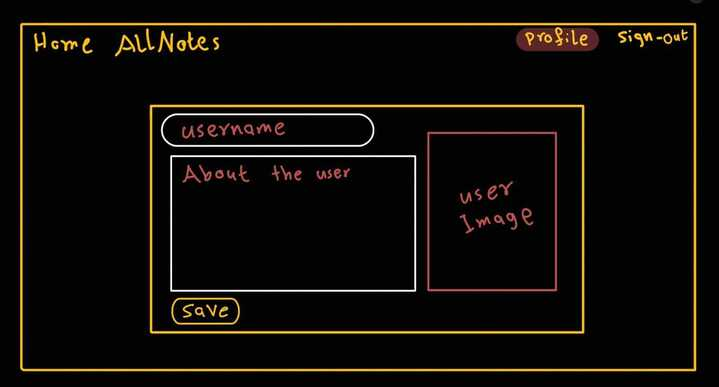 Home AllNotes Profile Sign-out
username
About the user
user
Image
save